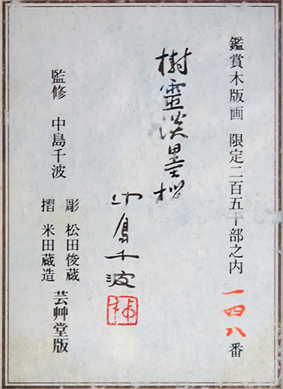 鑑賞木版画 限定二百五十部之内 一四八番
樹霊淡墨桜
中島千波
監修 中島千波
彫 松田俊蔵
摺 米田蔵造
芸艸堂版